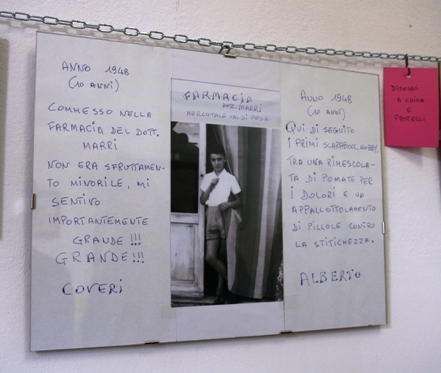 ANNO 1948
(10 ANNI)
COMMESSO NELLA
FARMACIA DEL DOTT.
MARRI
NON ERA SFRUTTAMEN-
TO MINORILE, MI
SENTIVO
IMPORTANTEMENTE
GRANDE!!!
GRANDE!!!
COVERI
FARMACIA
DOTT. MARRI
MERCATALE VAL DI PESA
ANNO 1948
(10 ANNI)
QUI DI SEGUITO
I PRIMI SCARABOCCHI, HOBBY
TRA UNA RIMESCOLA-
TA DI POMATE PER
I DOLORI E UN
APPALLOTTOLAMENTO
DI PILLOLE CONTRO
LA STITICHEZZA.
ALBERTO
DISEGNI
A CHINA
E
PASTELLI